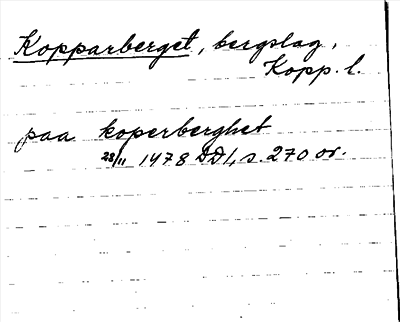 Kopparberget, bergslag,
Kopp. l.
paa koperberghet
28/11 1478 DD1, s. 270 or.